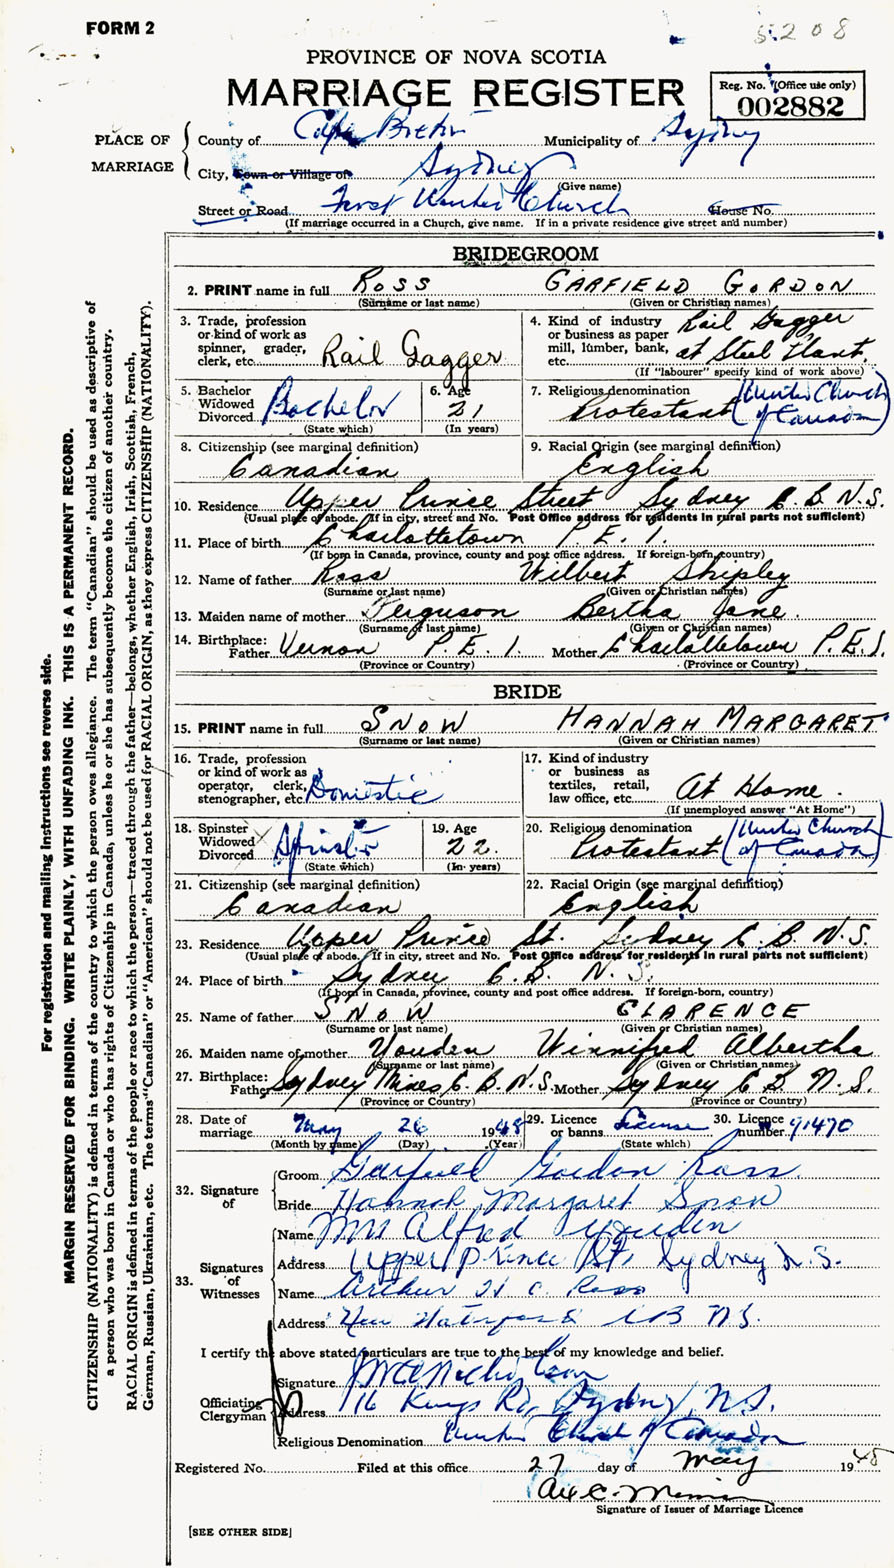 FORM 2
5208
PROVINCE OF NOVA SCOTIA
MARRIAGE REGISTER
Reg. No. (Office use only)
002882
PLACE OF MARRIAGE
County of Cape Breton Municipality of Sydney
City, Town or Village of Sydney
(Give name)
Street or Road First United Church House No.
(If marriage occurred in a Church, give name. If in a private residence give street and number)
BRIDEGROOM
2. PRINT name in full ROSS GARFIELD GORDON
(Surname or last name) (Given or Christian names)
3. Trade, profession or kind of work as spinner, grader, clerk, etc. Rail Gagger
4. Kind of industry or business as paper mill, lumber, bank, etc. Rail Gagger at Steel Plant.
(If "labourer" specify kind of work above)
5. Bachelor Widowed Divorced Bachelor
(State which)
6. Age 21
(In years)
7. Religious denomination Protestant (United Church of Canada)
8. Citizenship (see marginal definition) Canadian
9. Racial Origin (see marginal definition) English
10. Residence Upper Prince Street Sydney C.B. N.S.
(Usual place of abode. If in city, street and No. Post Office address for residents in rural parts not sufficient)
11. Place of birth Charlottetown P.E.I.
(If born in Canada, province, county and post office address. If foreign-born, country)
12. Name of father Ross Wilbert Shipley
(Surname or last name) (Given or Christian names)
13. Maiden name of mother Ferguson Bertha Jane
(Surname or last name) (Given or Christian names)
14. Birthplace: Father Vernon P.E.I. Mother Charlottetown P.E.I.
(Province or Country) (Province or Country)
BRIDE
15. PRINT name in full SNOW HANNAH MARGARET
(Surname or last name) (Given or Christian names)
16. Trade, profession or kind of work as operator, clerk, stenographer, etc. Domestic
17. Kind of industry or business as textiles, retail, law office, etc. At Home.
(If unemployed answer "At Home")
18. Spinster Widowed Divorced Spinster
(State which)
19. Age 22.
(In years)
20. Religious denomination Protestant (United Church of Canada)
21. Citizenship (see marginal definition) Canadian
22. Racial Origin (see marginal definition) English
23. Residence Upper Prince St. Sydney C.B. N.S.
(Usual place of abode. If in city, street and No. Post Office address for residents in rural parts not sufficient)
24. Place of birth Sydney C.B. N.S.
(If born in Canada, province, county and post office address. If foreign-born, country)
25. Name of father SNOW CLARENCE
(Surname or last name) (Given or Christian names)
26. Maiden name of mother Youden Winnifred Albertha
(Surname or last name) (Given or Christian names)
27. Birthplace: Father Sydney Mines C.B. N.S. Mother Sydney C.B. N.S.
(Province or Country) (Province or Country)
28. Date of marriage May 26 1948
(Month by name) (Day) (Year)
29. Licence or banns License
(State which)
30. Licence number 91470
32. Signature of
Groom Garfield Gordon Ross
Bride Hannah Margaret Snow
33. Signatures of Witnesses
Name Mrs Alfred Youden
Address Upper Prince St, Sydney N.S.
Name Arthur H C. Ross
Address New Waterford CB NS.
I certify the above stated particulars are true to the best of my knowledge and belief.
Officiating Clergyman
Signature Nicholson
Address 116 Kings Rd, Sydney, N.S.
Religious Denomination United Church of Canada
Registered No. Filed at this office 27 day of May 1948
Signature of Issuer of Marriage Licence
[SEE OTHER SIDE]
For registration and mailing instructions see reverse side.
MARGIN RESERVED FOR BINDING. WRITE PLAINLY, WITH UNFADING INK. THIS IS A PERMANENT RECORD.
CITIZENSHIP (NATIONALITY) is defined in terms of the country to which the person owes allegiance. The term "Canadian" should be used as descriptive of
a person who was born in Canada or who has rights of Citizenship in Canada, unless he or she has subsequently become the citizen of another country.
RACIAL ORIGIN is defined in terms of the people or race to which the person—traced through the father—belongs, whether English, Irish, Scottish, French,
German, Russian, Ukrainian, etc. The terms "Canadian" or "American" should not be used for RACIAL ORIGIN, as they express CITIZENSHIP (NATIONALITY).